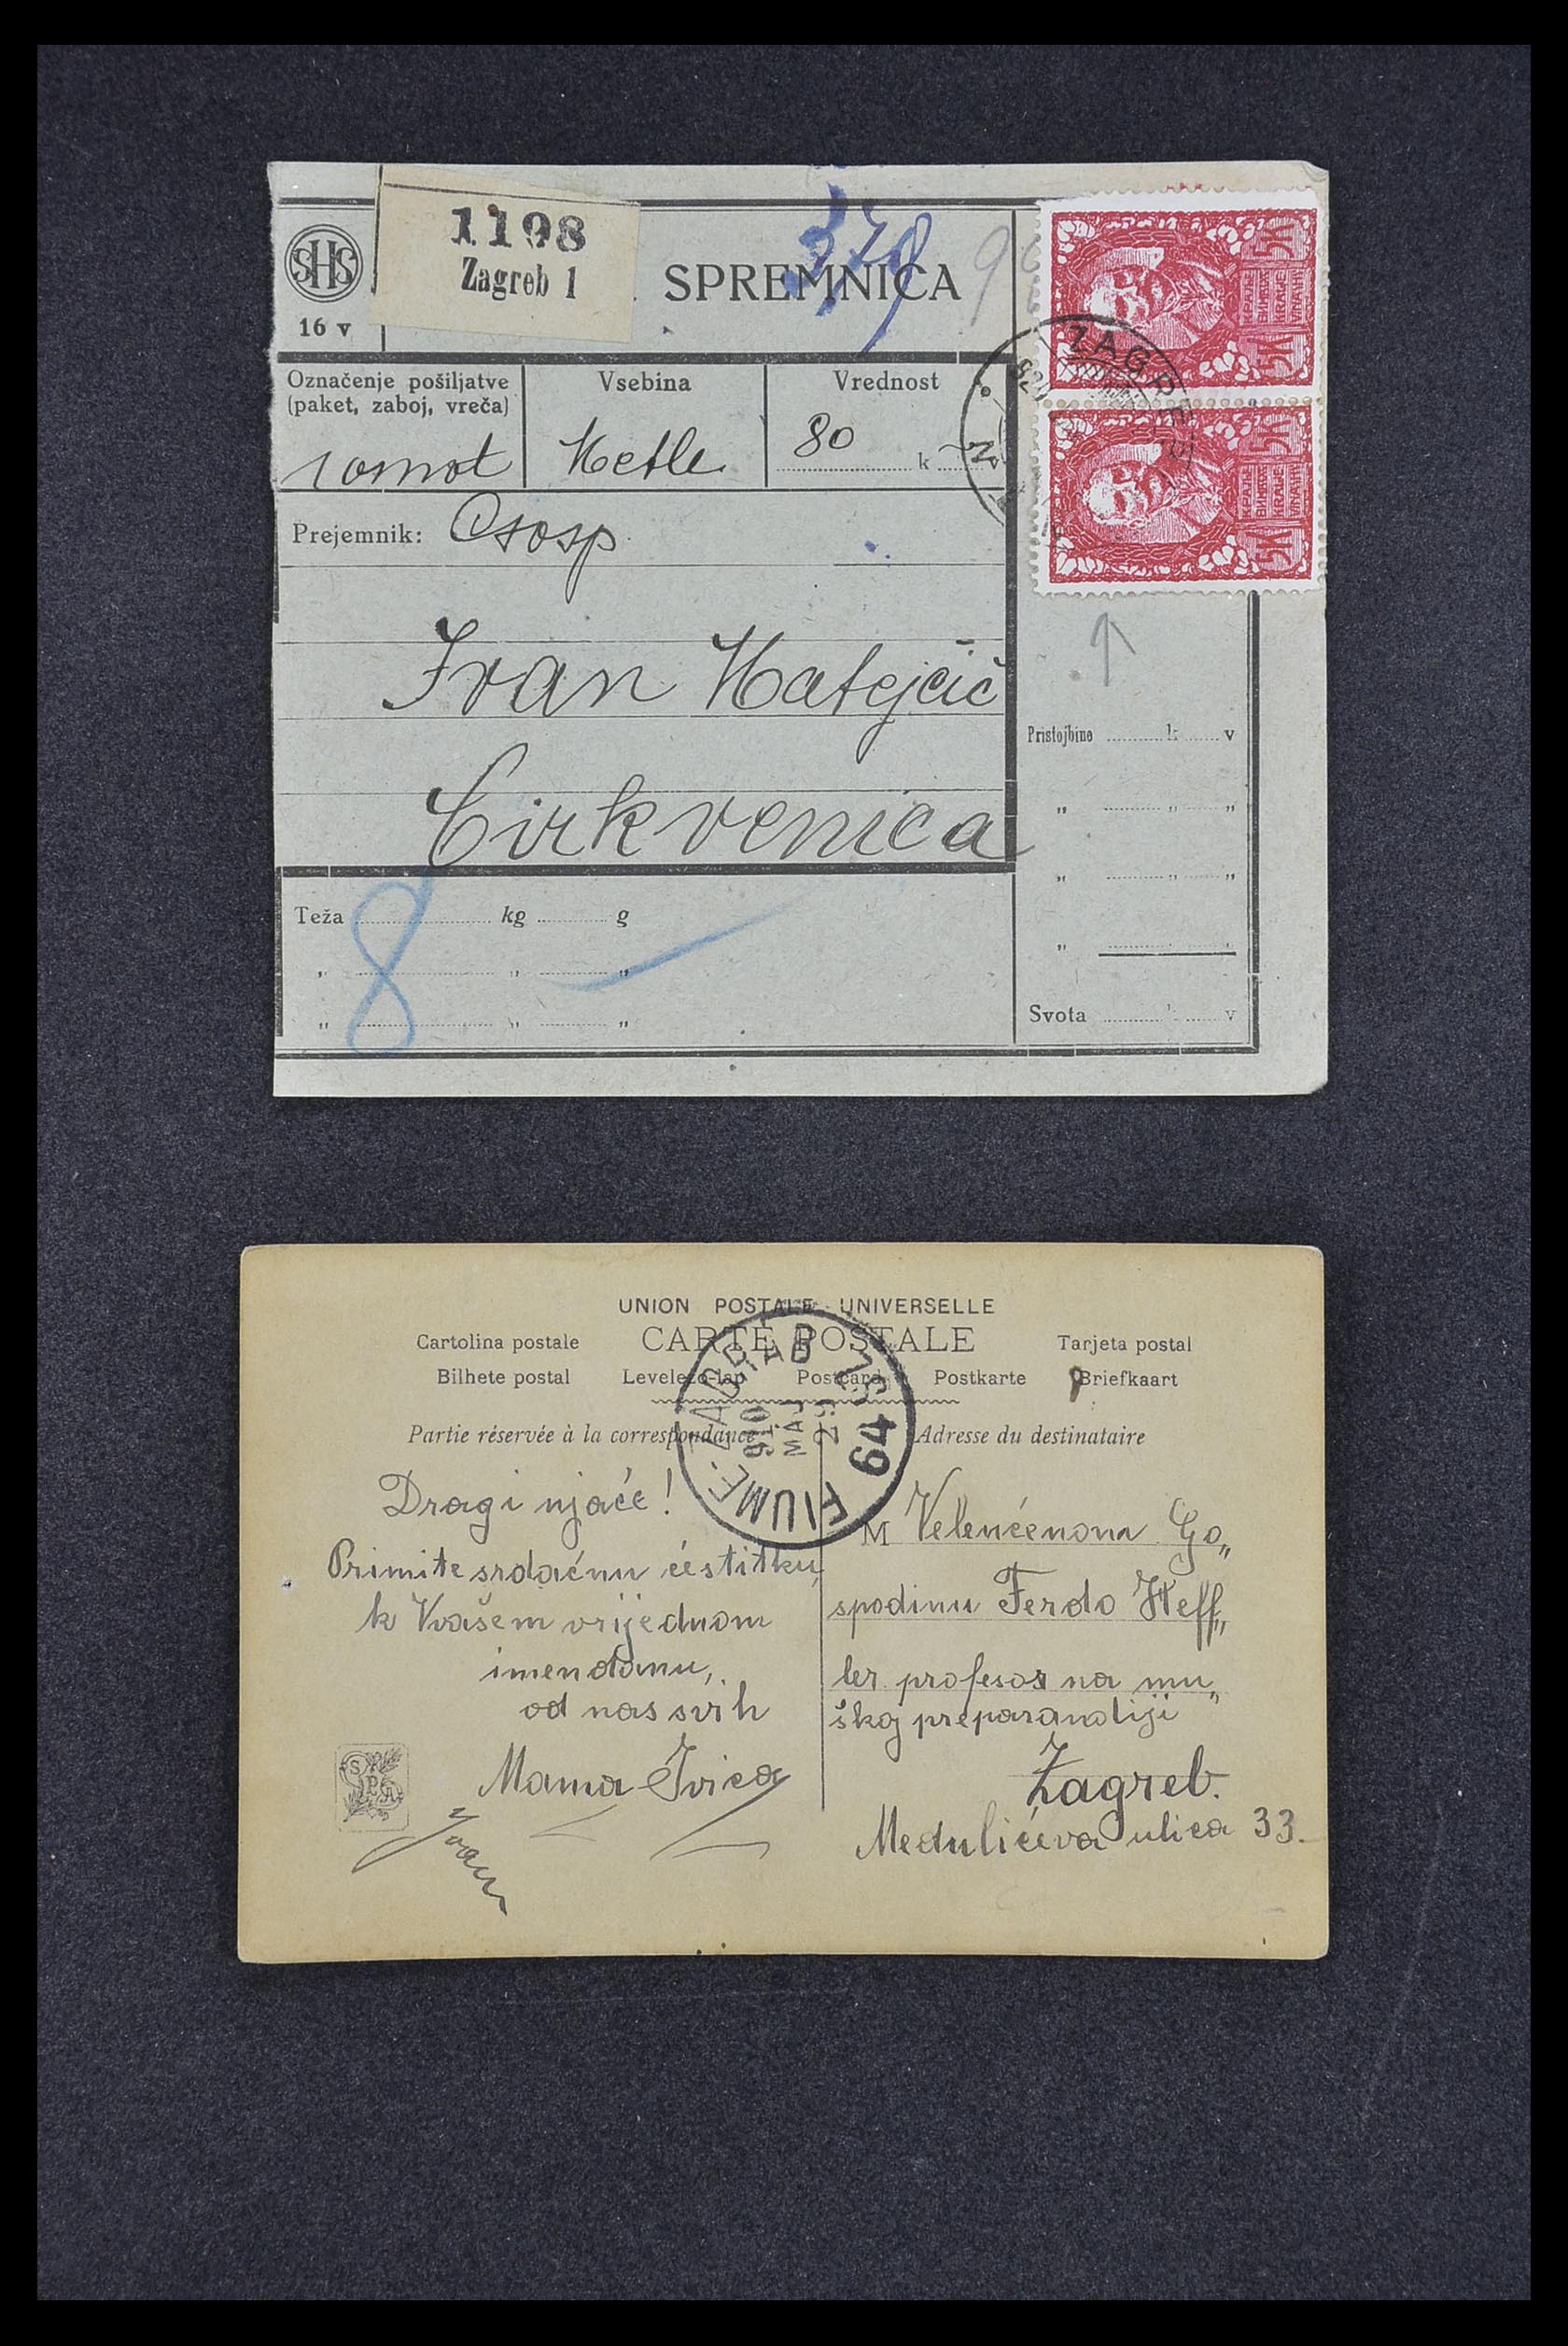 SHS
16 v
1198
Zagreb 1
SPREMNICA
Označenje pošiljatve
(paket, zaboj, vreča)
Vsebina
Vrednost
1 omot
Metle
80 k v
Prejemnik:
Ivan Matejčić
Cirkvenica
ZAGREB
5K
5K
Pristojbine k v
" " "
" " "
"
Teža kg g
" " "
" " "
8
Svota k v
UNION POSTALE UNIVERSELLE
CARTE POSTALE
Cartolina postale
Tarjeta postal
Bilhete postal
Levelező-lap
Postcard
Postkarte
Briefkaart
Partie réservée à la correspondance
Adresse du destinataire
FIUME-ZÁGRÁB
910
MÁJ
29
64
Dragi ujače!
Primite srdaćnu ćestitku,
k Vašem vrijednom
imendanu,
od nas svih
Mama Ivica
Ivan
M Velenćenona Go„
spodinu Ferdo Heff„
ler profesor na mu„
škoj preparandiji
Zagreb.
Medulićeva ulica 33.